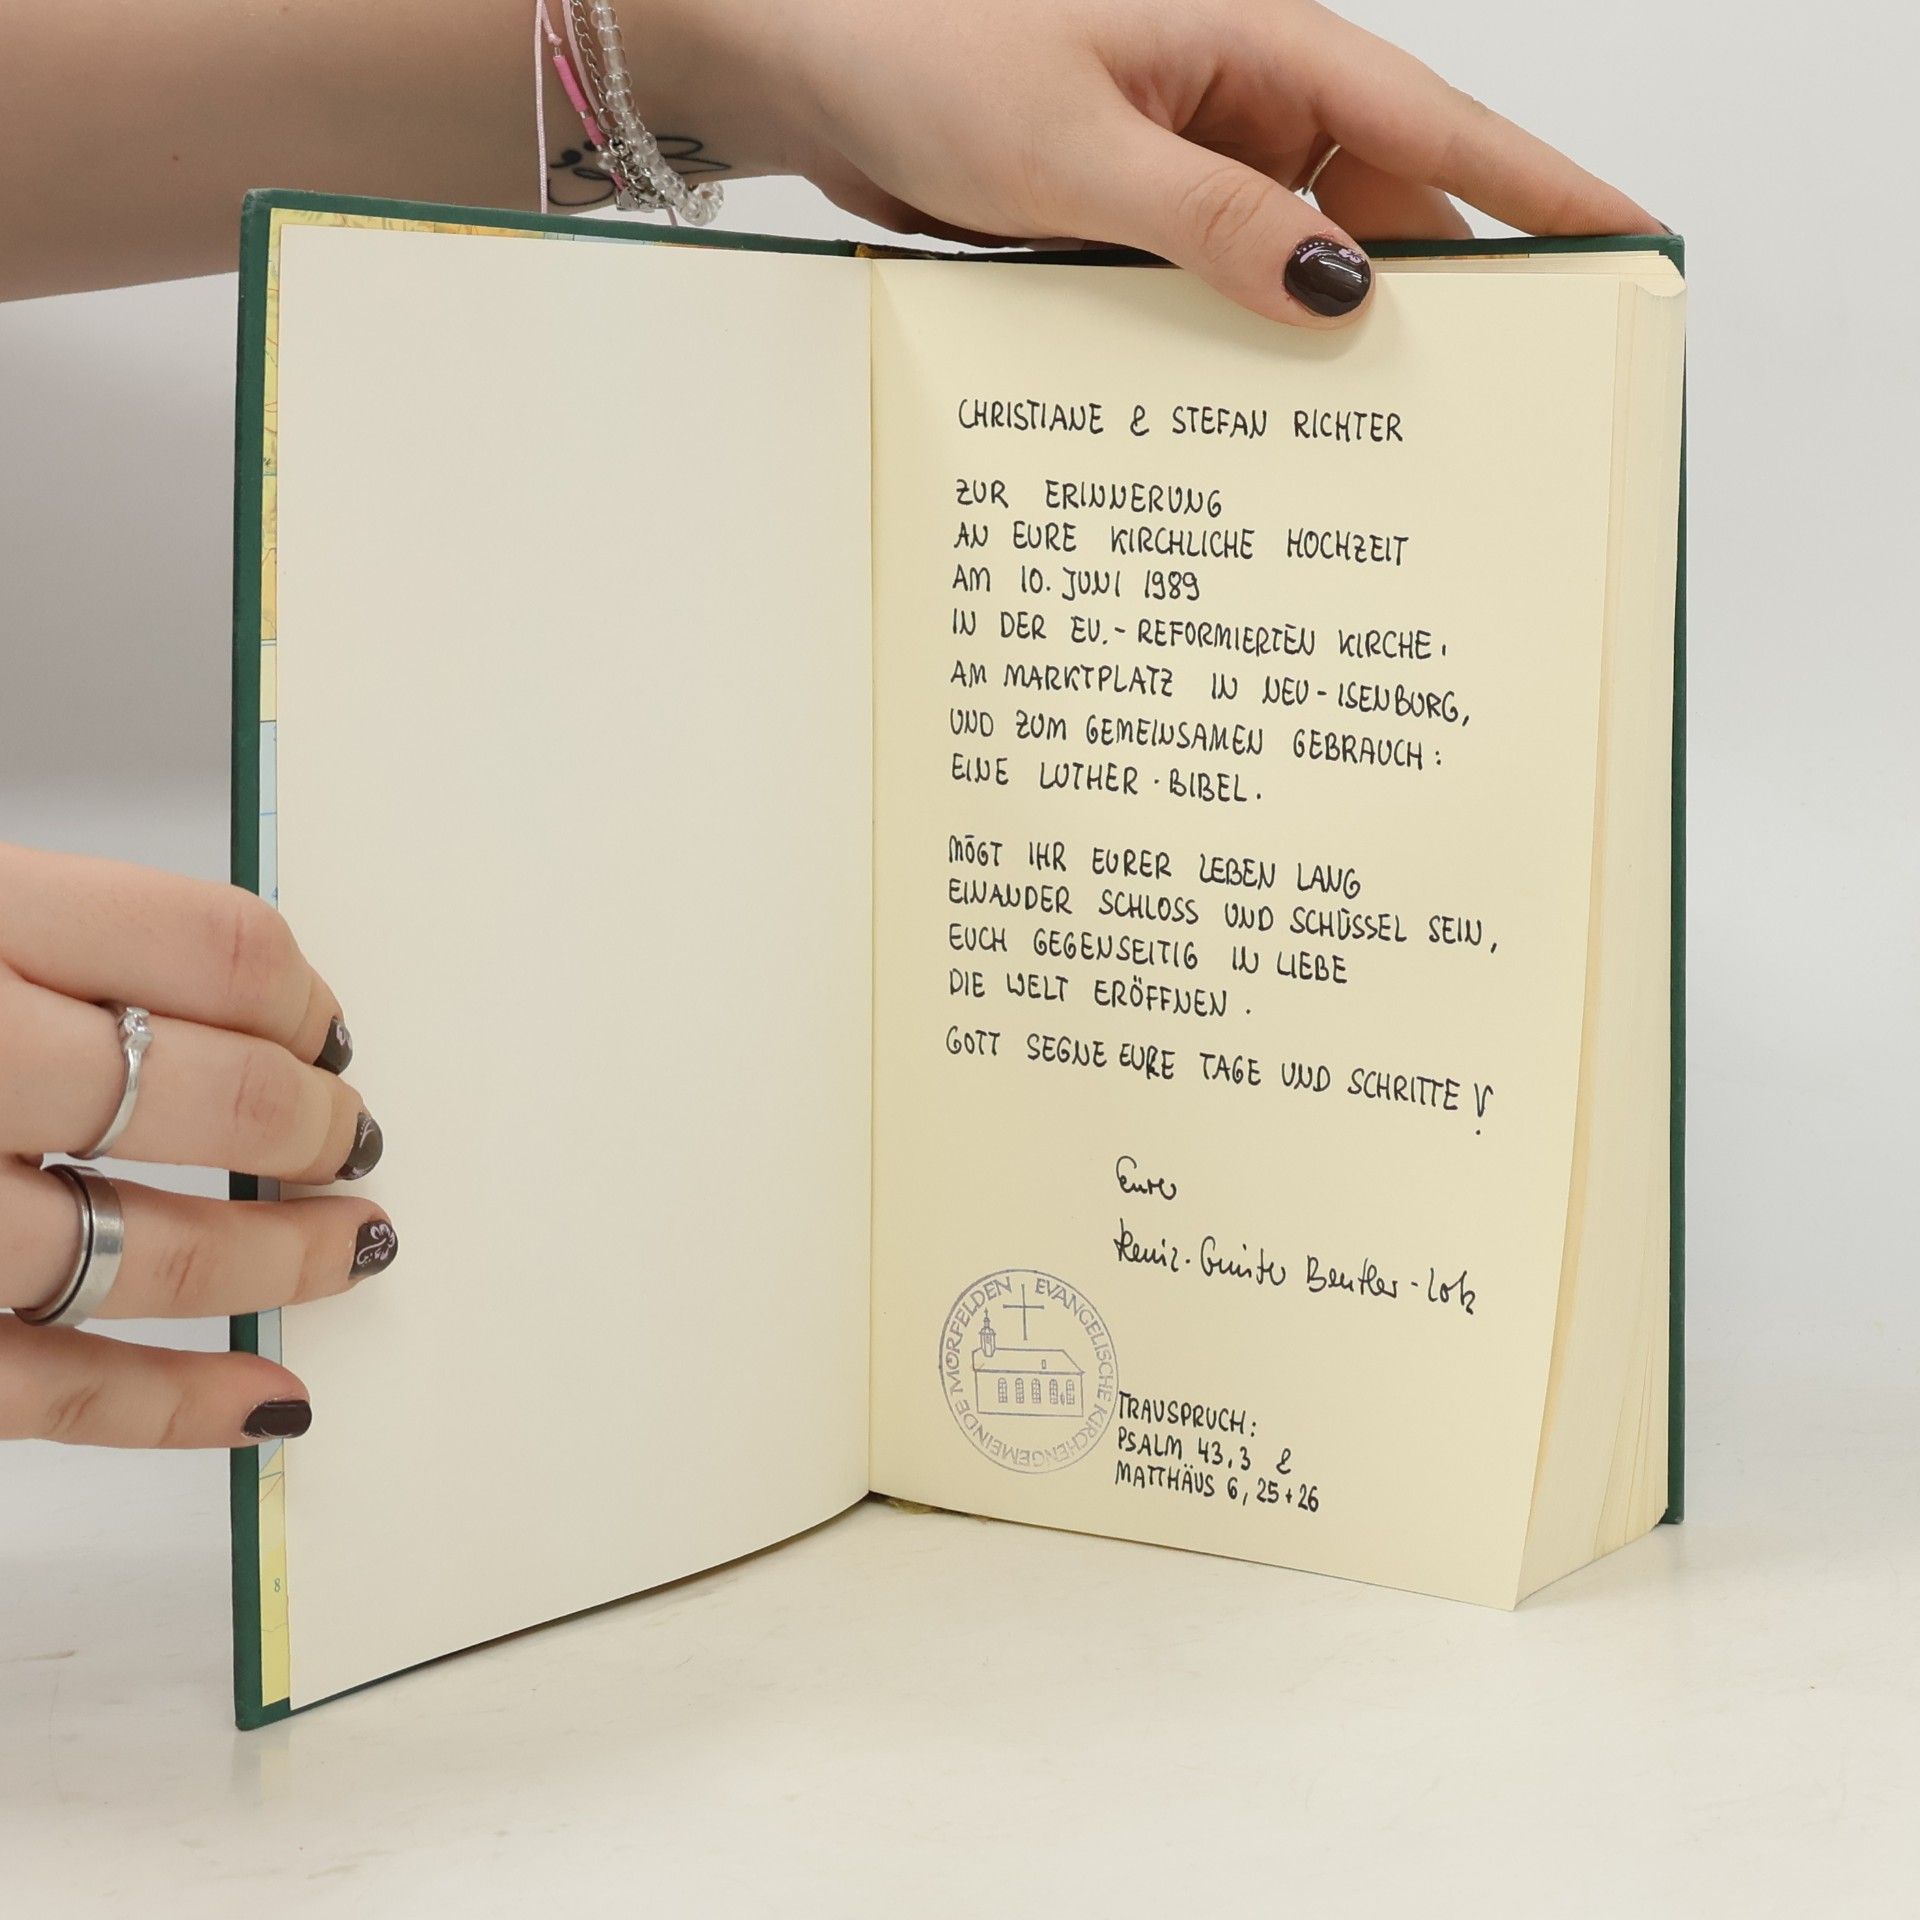 CHRISTIANE & STEFAN RICHTER
ZUR ERINNERUNG
AN EURE KIRCHLICHE HOCHZEIT
AM 10. JUNI 1989
IN DER EV.-REFORMIERTEN KIRCHE.
AM MARKTPLATZ IN NEU-ISENBURG,
UND ZUM GEMEINSAMEN GEBRAUCH:
EINE LUTHER-BIBEL.
MÖGT IHR EURER LEBEN LANG
EINANDER SCHLOSS UND SCHÜSSEL SEIN,
EUCH GEGENSEITIG IN LIEBE
DIE WELT ERÖFFNEN.
GOTT SEGNE EURE TAGE UND SCHRITTE!
EVANGELISCHE KIRCHENGEMEINDE MÖRFELDEN
TRAUSPRUCH:
PSALM 43,3 &
MATTHÄUS 6, 25+26
8